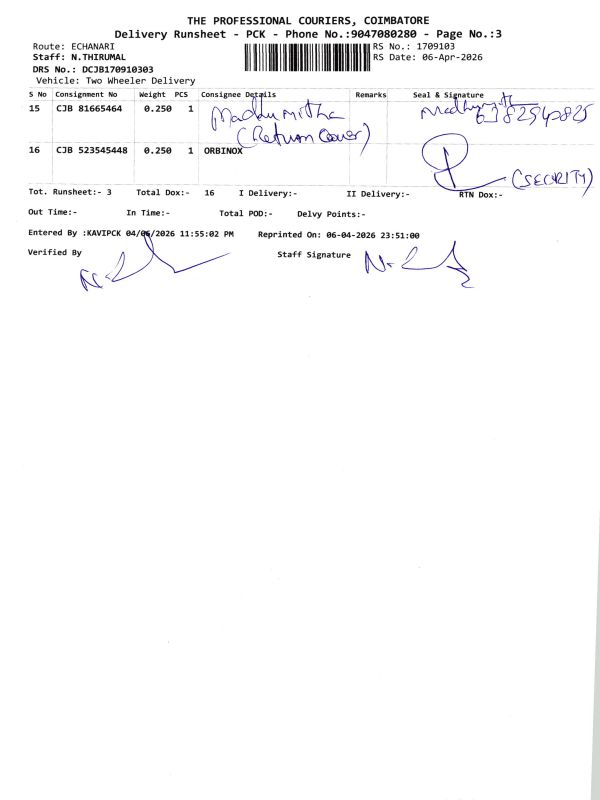 THE PROFESSIONAL COURIERS, COIMBATORE
Delivery Runsheet - PCK - Phone No.:9047080280 - Page No.:3
Route: ECHANARI
RS No.: 1709103
Staff: N.THIRUMAL
RS Date: 06-Apr-2026
DRS No.: DCJB170910303
Vehicle: Two Wheeler Delivery
S No Consignment No Weight PCS Consignee Details Remarks Seal & Signature
15 CJB 81665464 0.250 1 Madhumitha Madhumitha
(Return Cover) 6382540825
16 CJB 523545448 0.250 1 ORBINOX
(SECURITY)
Tot. Runsheet:- 3 Total Dox:- 16 I Delivery:- II Delivery:- RTN Dox:-
Out Time:- In Time:- Total POD:- Delvy Points:-
Entered By :KAVIPCK 04/06/2026 11:55:02 PM Reprinted On: 06-04-2026 23:51:00
Verified By Staff Signature